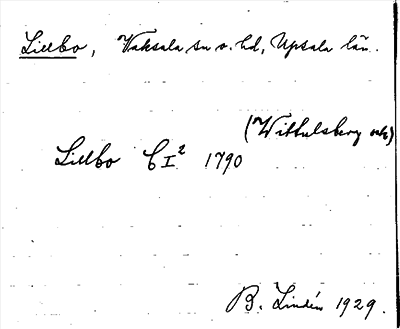 Lillbo, Vaksala sn o. hd, Upsala län.
(Wittulsberg och)
Lillbo C I² 1790
B. Lindén 1929.